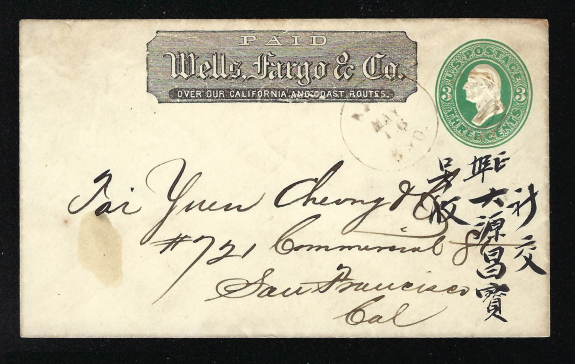 PAID
Wells, Fargo & Co.
OVER OUR CALIFORNIA AND COAST ROUTES.
U.S. POSTAGE
3 3
THREE CENTS
MAY
16
Tai Yuen Cheong & Co
#721 Commercial St
San Francisco
Cal
計交
大源昌寶
收